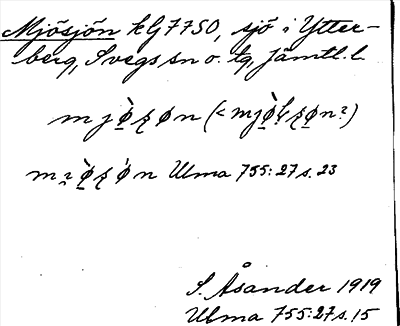 Mjösjön kG7750, sjö i Ytter-
berg, Svegs sn o. tg, Jämtl. l.
Ulma 755:27 s. 23
S. Åsander 1919
Ulma 755:27 s. 15